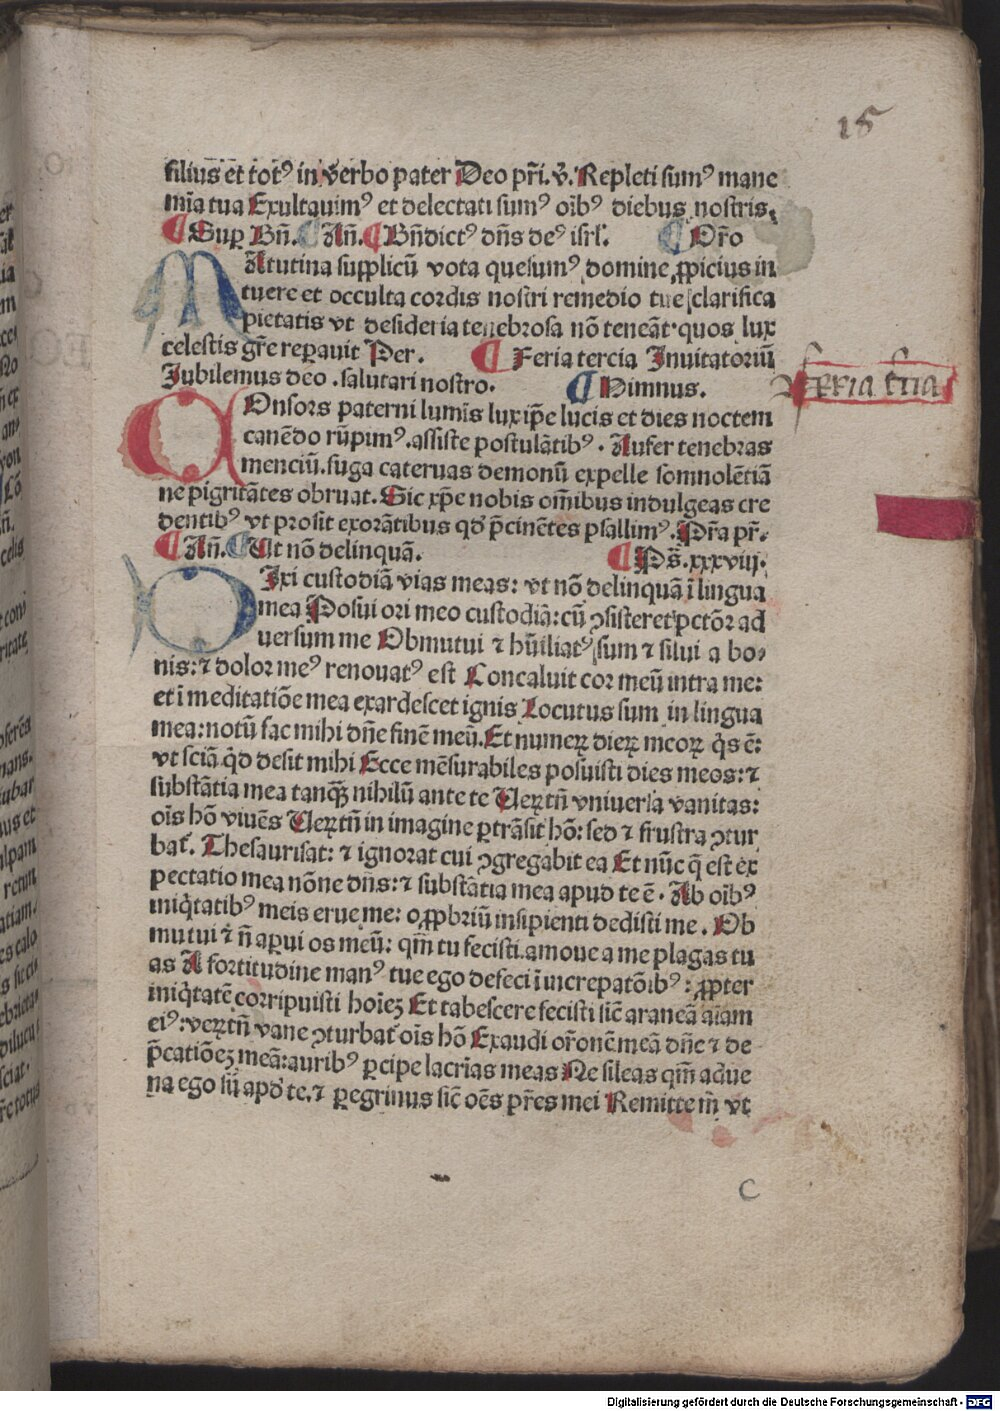 15
filius et totꝰ in v̄erbo pater Deo pr̄i. v̄. Repleti sumꝰ mane
mīa tua Exultauimꝰ et delectati sumꝰ oībꝰ diebus nostris.
Suꝑ Bn̄. An̄. Bn̄dictꝰ dn̄s deꝰ isrł. Or̄o
Matutina supplicū vota quesumꝰ domine ꝓpicius in
tuere et occulta cordis nostri remedio tue clarifica
pietatis vt desideria tenebrosa nō teneāt quos lux
celestis gr̄e reꝑauit Per. Feria tercia Inuitatoriū
Iubilemus deo .salutari nostro. Himnus.
feria t̄cia
COnsors paterni lumīs lux ip̄e lucis et dies noctem
canēdo rūpimꝰ.assiste postulātibꝰ. Aufer tenebras
menciū.fuga cateruas demonū expelle somnolētiā
ne pigritātes obruat. Sic xp̄e nobis om̄ibus indulgeas cre
dentibꝰ vt prosit exorātibus qd̛ p̄cinētes psallimꝰ. Pr̄a pr̄.
An̄. Vt nō delinquā. Ps̄.xxxviij.
DIxi custodiā vias meas: vt nō delinquā ī lingua
mea Posui ori meo custodiā: cū ꝯsisteret pctōr ad
uersum me Obmutui ⁊ hūiliatꝰ sum ⁊ silui a bo-
nis: ⁊ dolor meꝰ renouatꝰ est Concaluit cor meū intra me:
et ī meditatiōe mea exardescet ignis Locutus sum in lingua
mea: notū fac mihi dn̄e finē meū. Et numeꝝ dieꝝ meoꝝ q̄s ē:
vt sciā q̛d desit mihi Ecce mēsurabiles posuisti dies meos: ⁊
substātia mea tanqꝫ nihilū ante te Ueꝝtn̄ vniuersa vanitas:
oīs hō viuēs Ueꝝtn̄ in imagine ꝑtrāsit hō: sed ⁊ frustra ꝯtur
bat̛. Thesaurisat: ⁊ ignorat cui ꝯgregabit ea Et nūc q̄ est ex
pectatio mea nōne dn̄s: ⁊ substātia mea apud te ē. Ab oībꝰ
iniq̛tatibꝰ meis erue me: oꝓbriū insipienti dedisti me. Ob
mutui ⁊ n̄ aꝑui os meū: qm̄ tu fecisti.amoue a me plagas tu
as A fortitudine manꝰ tue ego defeci ī increpatōībꝰ: ꝓpter
iniq̛tatē corripuisti hoīeꝫ Et tabescere fecisti sic̄ araneā aīam
eiꝰ: veꝝtn̄ vane ꝯturbat̛ oīs hō Exaudi or̄onē meā dn̄e ⁊ de
p̄catiōeꝫ meā: auribꝰ ꝑcipe lacrīas meas Ne sileas qm̄ adue
na ego sū apd̛ te. ⁊ ꝑegrinus sic̄ oēs pr̄es mei Remitte m̄ vt
c
Digitalisierung gefördert durch die Deutsche Forschungsgemeinschaft - DFG